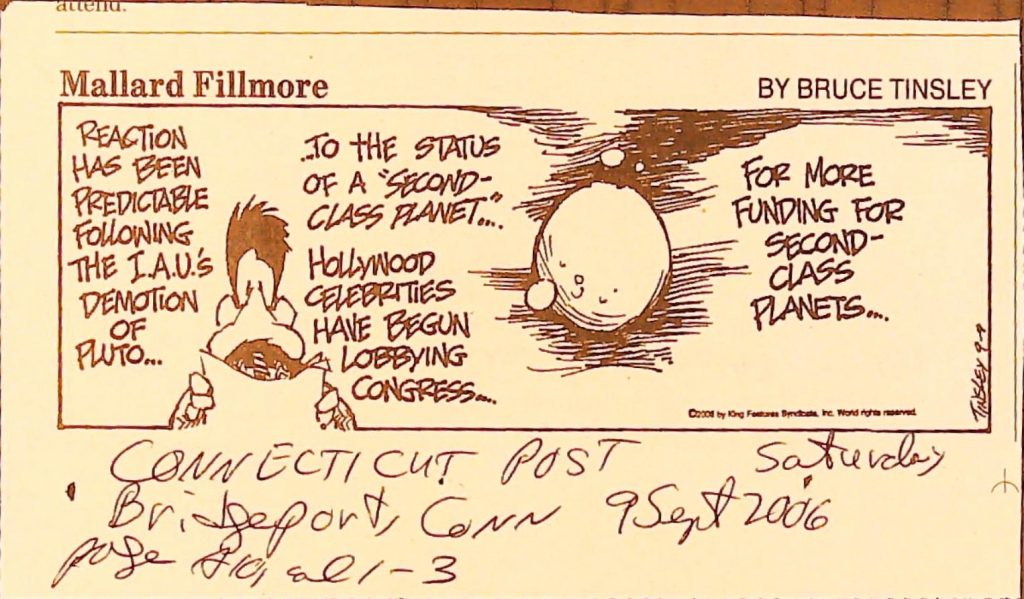 attend.
Mallard Fillmore
BY BRUCE TINSLEY
REACTION
HAS BEEN
PREDICTABLE
FOLLOWING
THE I.A.U.'S
DEMOTION
OF
PLUTO...
...TO THE STATUS
OF A "SECOND-
CLASS PLANET"...
HOLLYWOOD
CELEBRITIES
HAVE BEGUN
LOBBYING
CONGRESS...
FOR MORE
FUNDING FOR
SECOND-
CLASS
PLANETS...
©2006 by King Features Syndicate, Inc. World rights reserved.
TINSLEY 9-9
CONNECTICUT POST Saturday
Bridgeport, Conn 9 Sept 2006
page 1-3